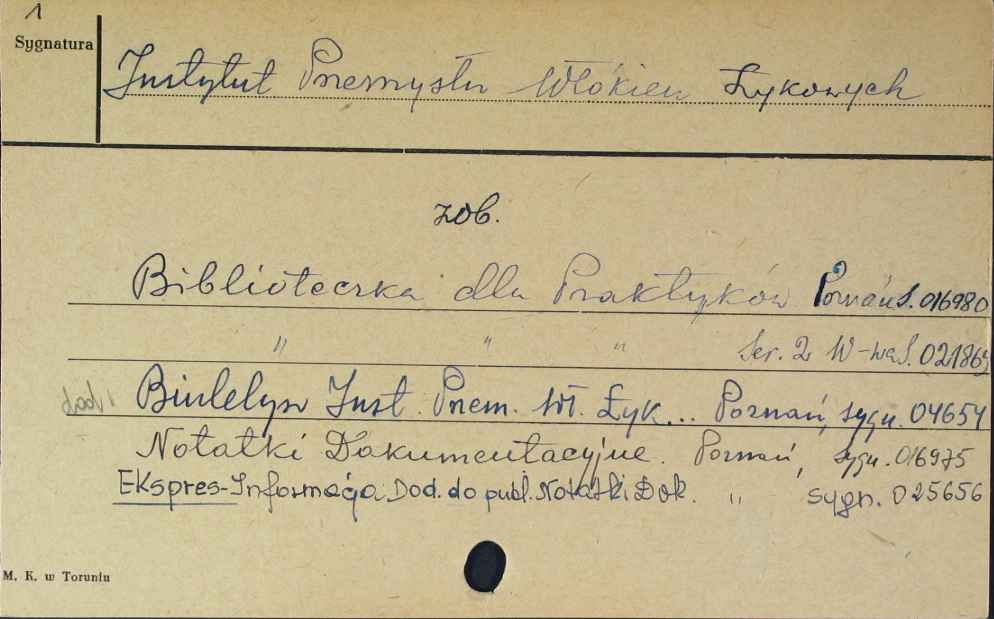 1
Sygnatura
Instytut Przemysłu Włókien Łykowych
zob.
Biblioteczka dla Praktyków Poznań S. 016980
" " " Ser. 2 W-wa S. 021869
Biuletyn Inst. Przem. Wł. Łyk... Poznań, sygn. 04654
Notatki Dokumentacyjne. Poznań, sygn. 016975
Ekspres-Informacja Dod. do publ. Notatki Dok. " sygn. 025656
M. K. w Toruniu